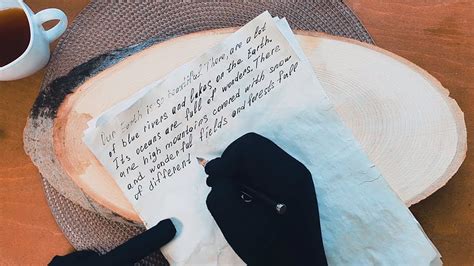 Our Earth is so beautiful! There are a lot
of blue rivers and lakes on the Earth.
Its oceans are full of wonders. There
are high mountains covered with snow
and wonderful fields and forests full
of different